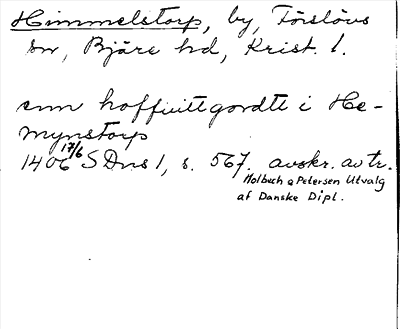 Himmelstorp, by, Förslövs
sn, Bjäre hd, Krist. l.
enn hoffuittgordtt i He-
mynstorp
1406 17/6 SDns 1, s. 567. avskr. av tr.
Molbech o Petersen Utvalg
af Danske Dipl.